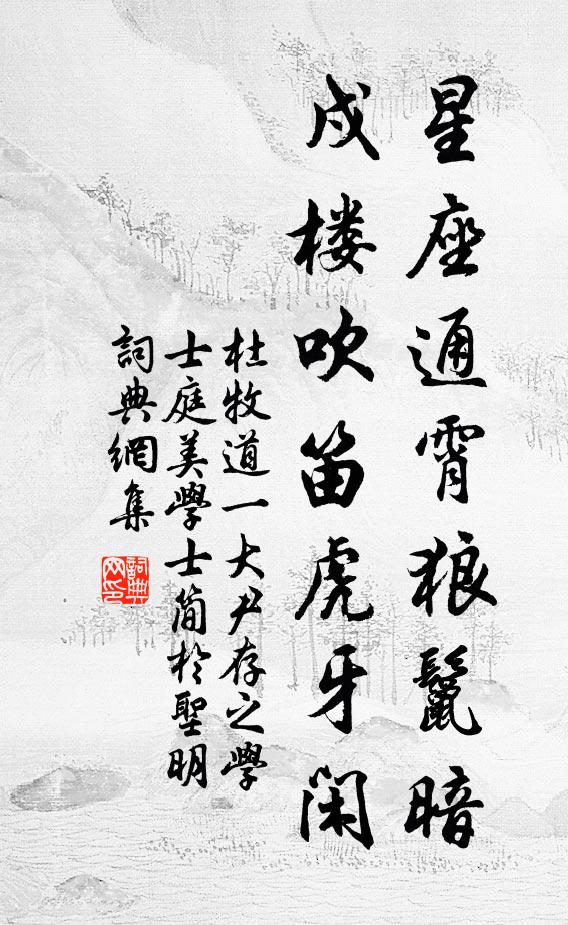 星座通霄狼鬣暗
戍楼吹笛虎牙闲
杜牧道一大尹存之學
士庭美學士簡於聖明
詞典網集
詞典
网印